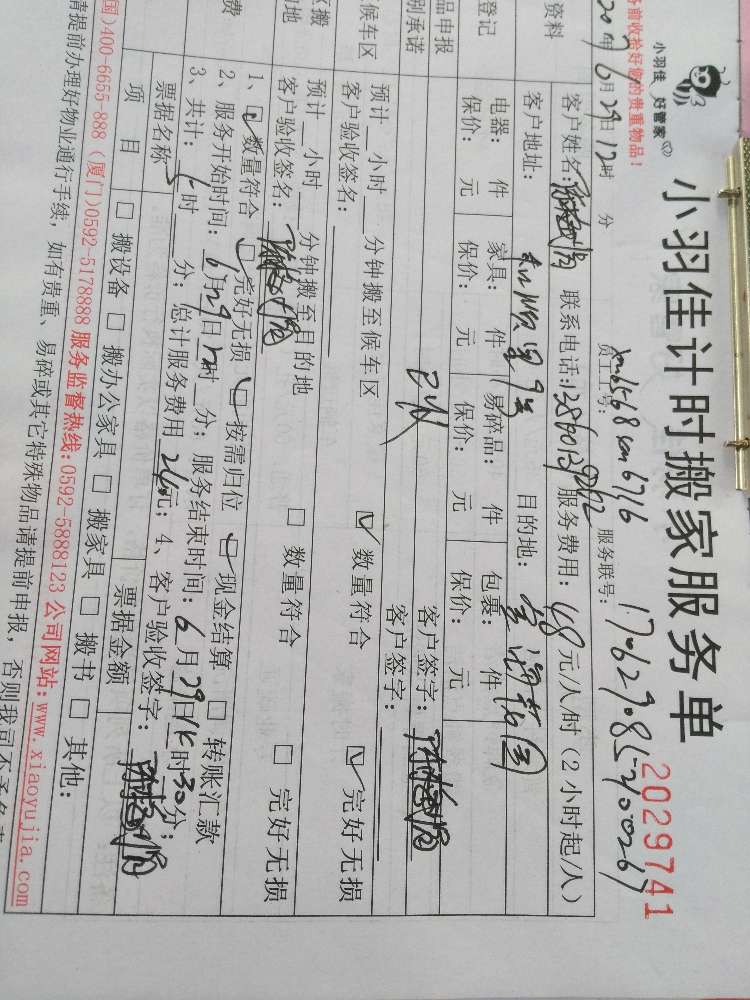 小羽佳 好管家
小羽佳计时搬家服务单
务前收拾好您的贵重物品!
2029741
2017年6月29日12时 分 员工工号: xm6568 xm6716 服务联号:
资料 客户姓名: 联系电话: 服务费用: 48元/人/时(2小时起/人)
客户地址: 目的地:
登记 电器: 件 家具: 件 易碎品: 件 包裹: 件
保价: 元 保价: 元 保价: 元 保价: 元
品申报
别承诺 客户签字:
候车区 预计 小时 分钟搬至候车区 ☑ 数量符合 ☑ 完好无损
客户验收签名: 客户签字:
区搬 预计 小时 分钟搬至目的地 □ 数量符合 □ 完好无损
的地 客户验收签名:
费 1、☑ 数量符合 ☑ 完好无损 ☑ 按需归位 ☑ 现金结算 □ 转账汇款
2、服务开始时间: 6月29日12时 分; 服务结束时间: 6月29日 时30分;
3、共计: 时 分; 总计服务费用 元; 4、客户验收签字:
票据名称 票据金额
项 目 □ 搬设备 □ 搬办公家具 □ 搬家具 □ 搬书 □ 其他:
国)400-6655-888 (厦门)0592-5178888 服务监督热线:0592-5888123 公司网站:www.xiaoyujia.com
请提前办理好物业通行手续, 如有贵重、易碎或其它特殊物品请提前申报, 否则我司不予负责